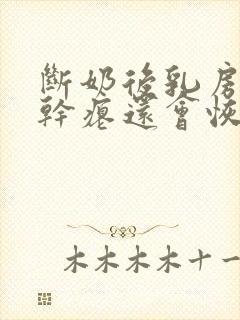 斷奶後乳房
幹癟還會恢
木木木木十一